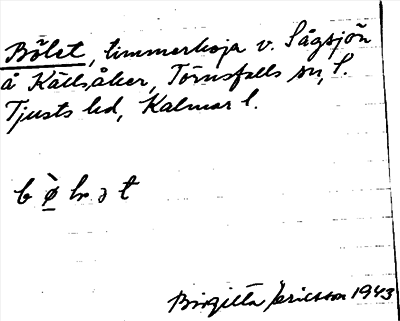 Bölet, timmerkoja v. Sågsjön
å Källsåker, Törnsfalls sn, S.
Tjusts hd, Kalmar l.
Birgitta Ericsson 1943